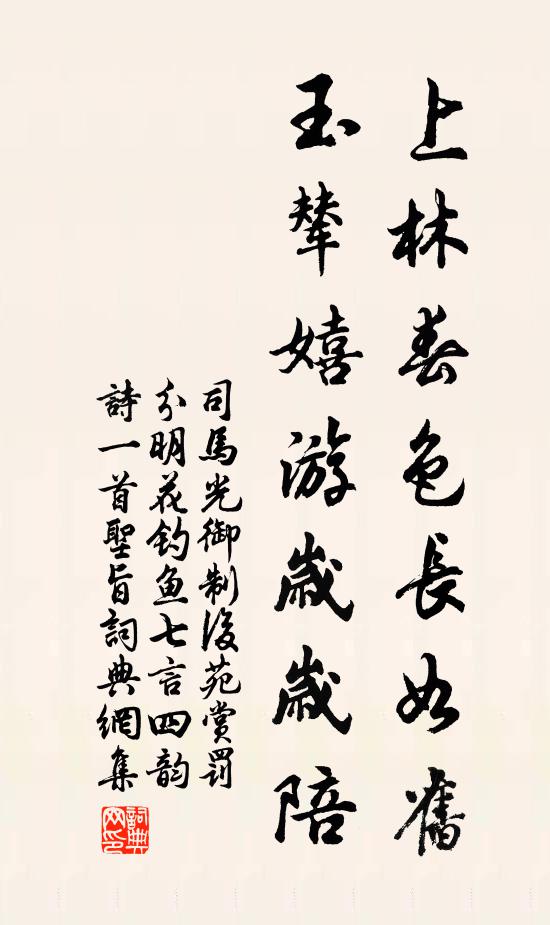 上林春色長如舊
玉輦嬉游歲歲陪
司馬光御制後苑賞罰
分明花釣魚七言四韵
詩一首聖旨詞典網集
詞典
网印